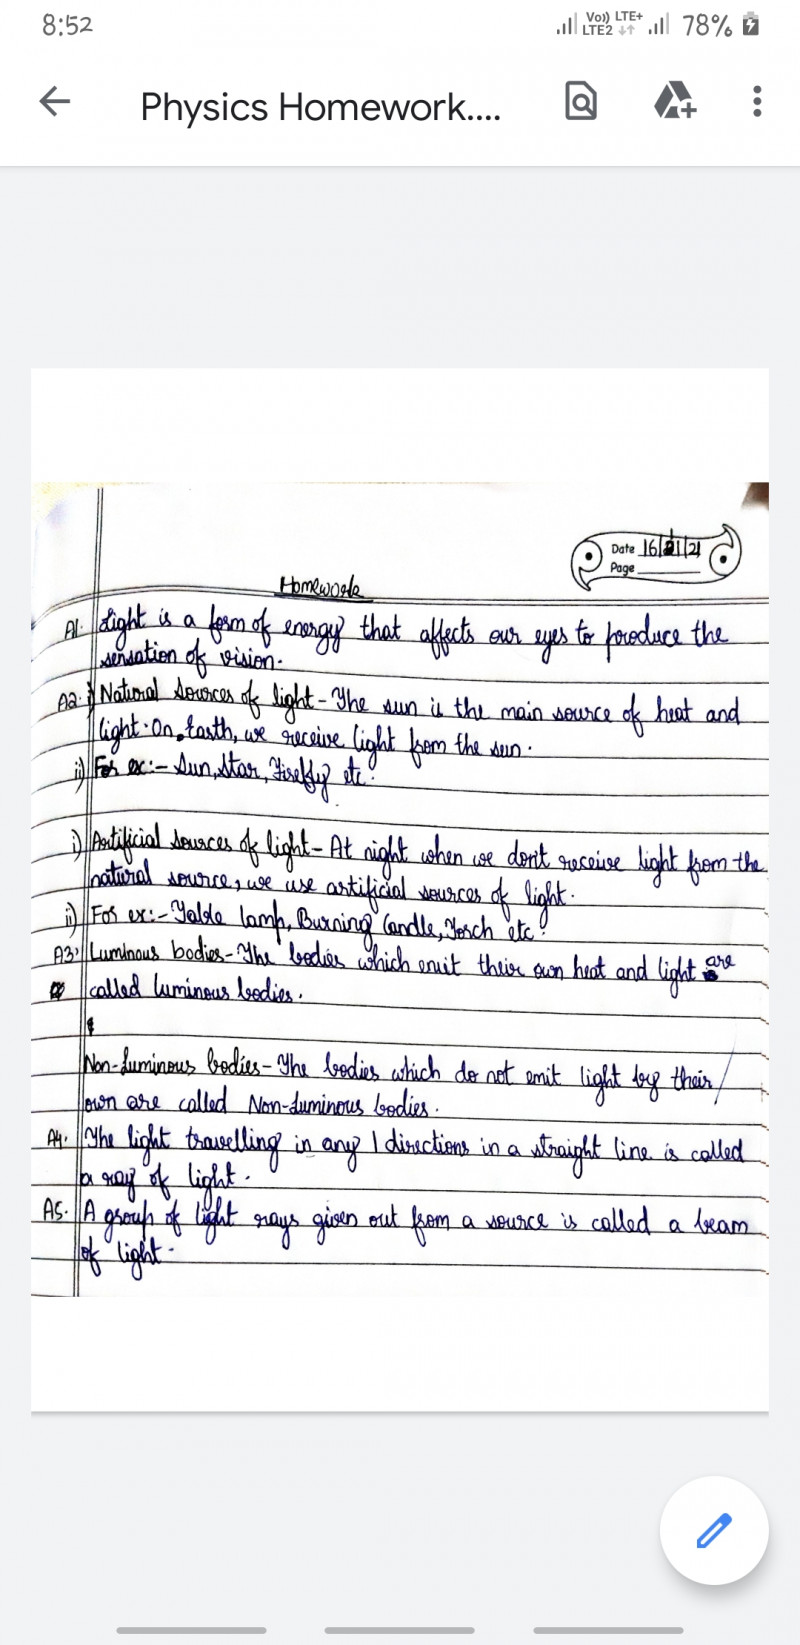 8:52
Vo)) LTE+
LTE2 78%
Physics Homework....
Date 16/21/21
Page
Homework
A1. Light is a form of energy that affects our eyes to produce the
sensation of vision.
A2. i) Natural Sources of light - The sun is the main source of heat and
light. On Earth, we receive light from the sun.
ii) For ex:- Sun, Star, Firefly etc.
i) Artificial Sources of light - At night when we dont receive light from the
natural source, we use artificial sources of light.
ii) For ex:- Table lamp, Burning Candle, Torch etc.
A3. Luminous bodies - The bodies which emit their own heat and light are
called luminous bodies.
Non-Luminous bodies - The bodies which do not emit light by their
own are called Non-Luminous bodies.
A4. The light travelling in any 1 directions in a straight line is called
a ray of light.
A5. A group of light rays given out from a source is called a beam
of light.